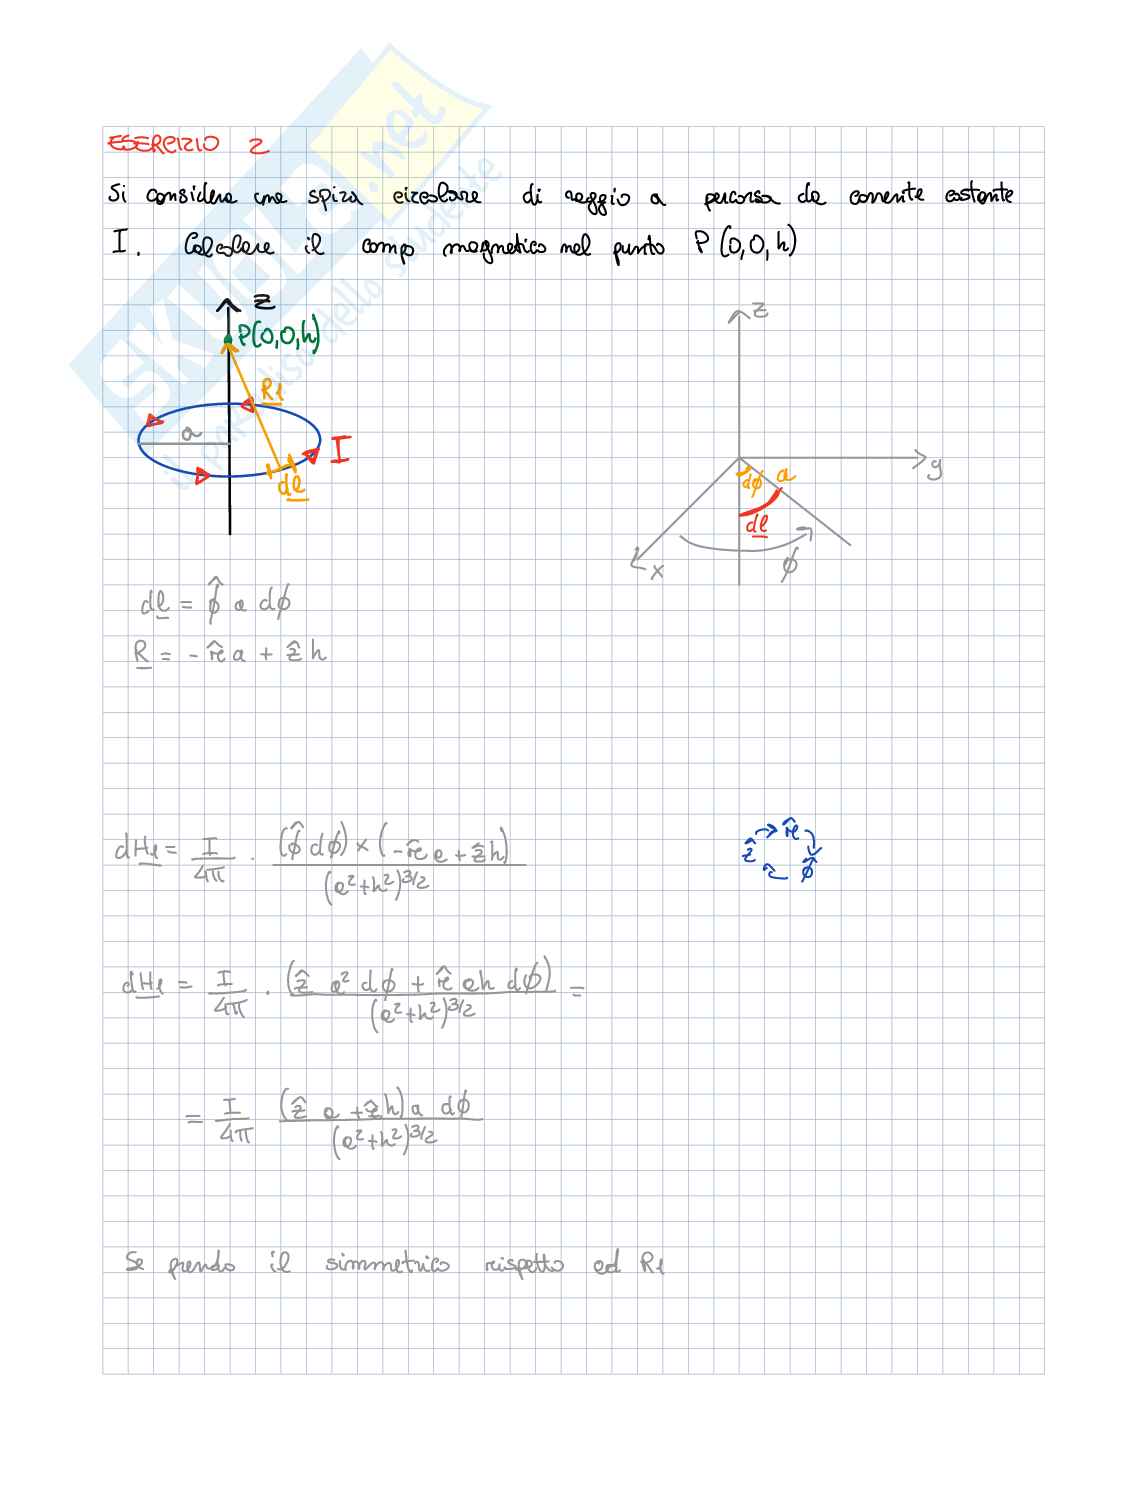 ESERCIZIO 2
Si considera una spira circolare di raggio a percorsa da corrente costante
I. Calcolare il campo magnetico nel punto P(0,0,h)
z
P(0,0,h)
R1
a
I
dl
z
y
dϕ a
dl
x
ϕ
dl = ϕ̂ a dϕ
R = - r̂ a + ẑ h
dH1 = I/4π · (ϕ̂ dϕ) × (-r̂ a + ẑ h) / (a²+h²)^3/2
ẑ r̂ ϕ̂
dH1 = I/4π · (ẑ a² dϕ + r̂ ah dϕ) / (a²+h²)^3/2 =
= I/4π (ẑ a + ẑ h) a dϕ / (a²+h²)^3/2
Se prendo il simmetrico rispetto ad R1
SKUOLA.net